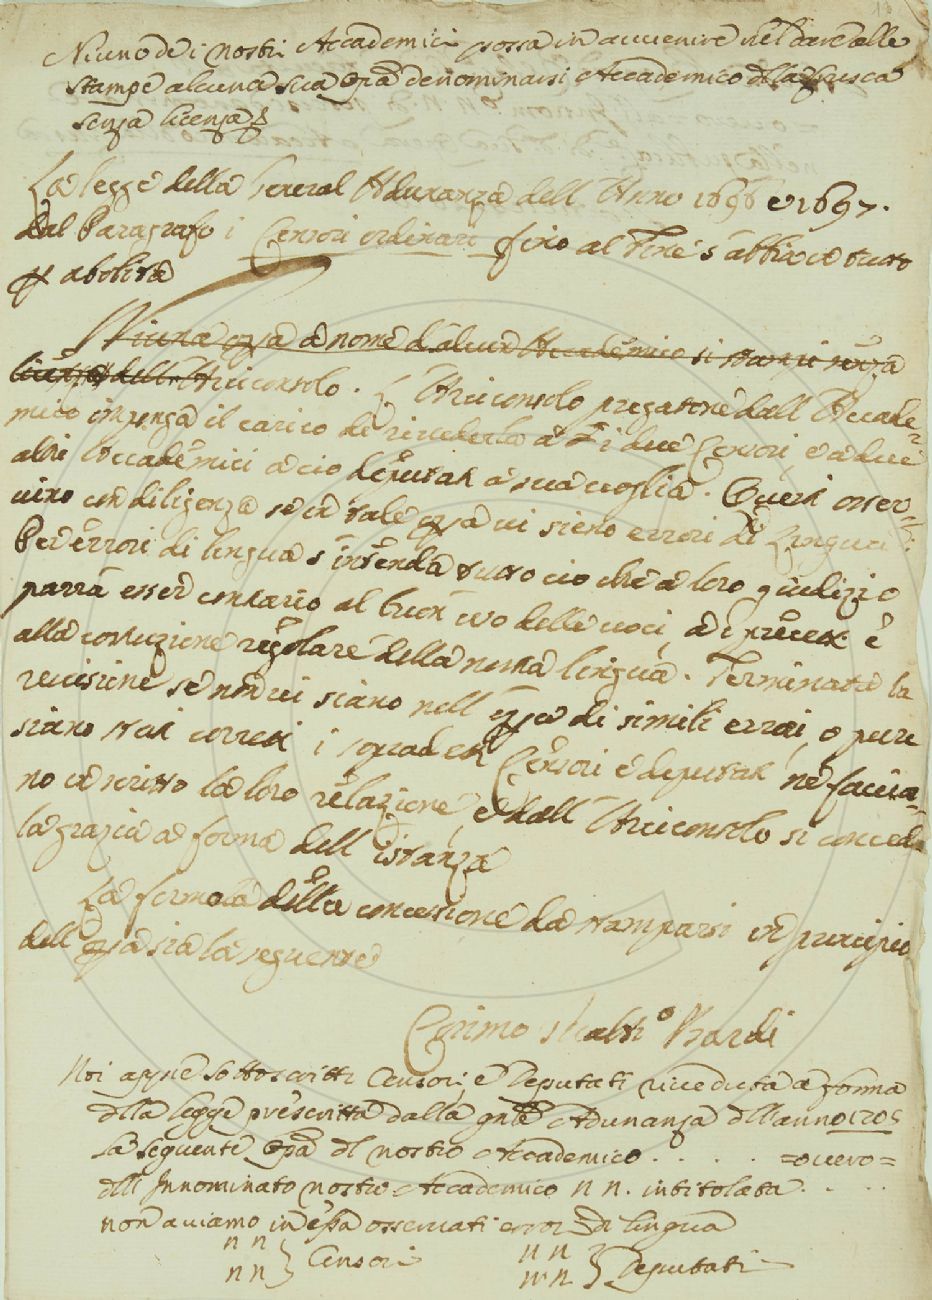 Niuno de i nostri Accademici possa in avvenire nel dare alle
stampe alcuna sua opa denominarsi Accademico della Crusca
senza licenza
La legge della General Adunanza dell Anno 1696 e 1697.
dal Paragrafo i Censori ordinari fino al Fine s abbia in tutto
p abolita
Niuna opa a nome d alcun Accademico si stampi senza
licenza dell Arciconsolo. L Arciconsolo pregatone dall Accade-
mico imponga il carico di rivederla a i due Censori, e a due
altri Accademici a cio deputati a sua voglia. Questi osser-
vino con diligenza se in tale opa vi sieno errori di Lingua
Per errori di lingua s intenda tutto cio che a loro giudizio
parrà esser contrario al buon uso delle voci, a i precetti e
alla costruzione regolare della nostra lingua. Terminata la
revisione se non vi siano nell opa di simili errori, o pure
siano stati corretti i sopradetti Censori e deputati ne faccia-
no in scritto la loro relazione, e dall Arciconsolo si conceda
la grazia a forma dell istanza
La formola della concessione da stamparsi in principio
dell opa sia la seguente
Cosimo Bardi
Noi appie sottoscritti Censori, e Deputati riveduta a forma
della legge prescritta dalla gnle Adunanza dell anno 170
la seguente Opa del nostro Accademico . . . . =overo=
dell Innominato nostro Accademico N N. intitolata . . .
non aviamo in essa osservati errori di lingua
N N } Censori N N } Deputati
N N N N